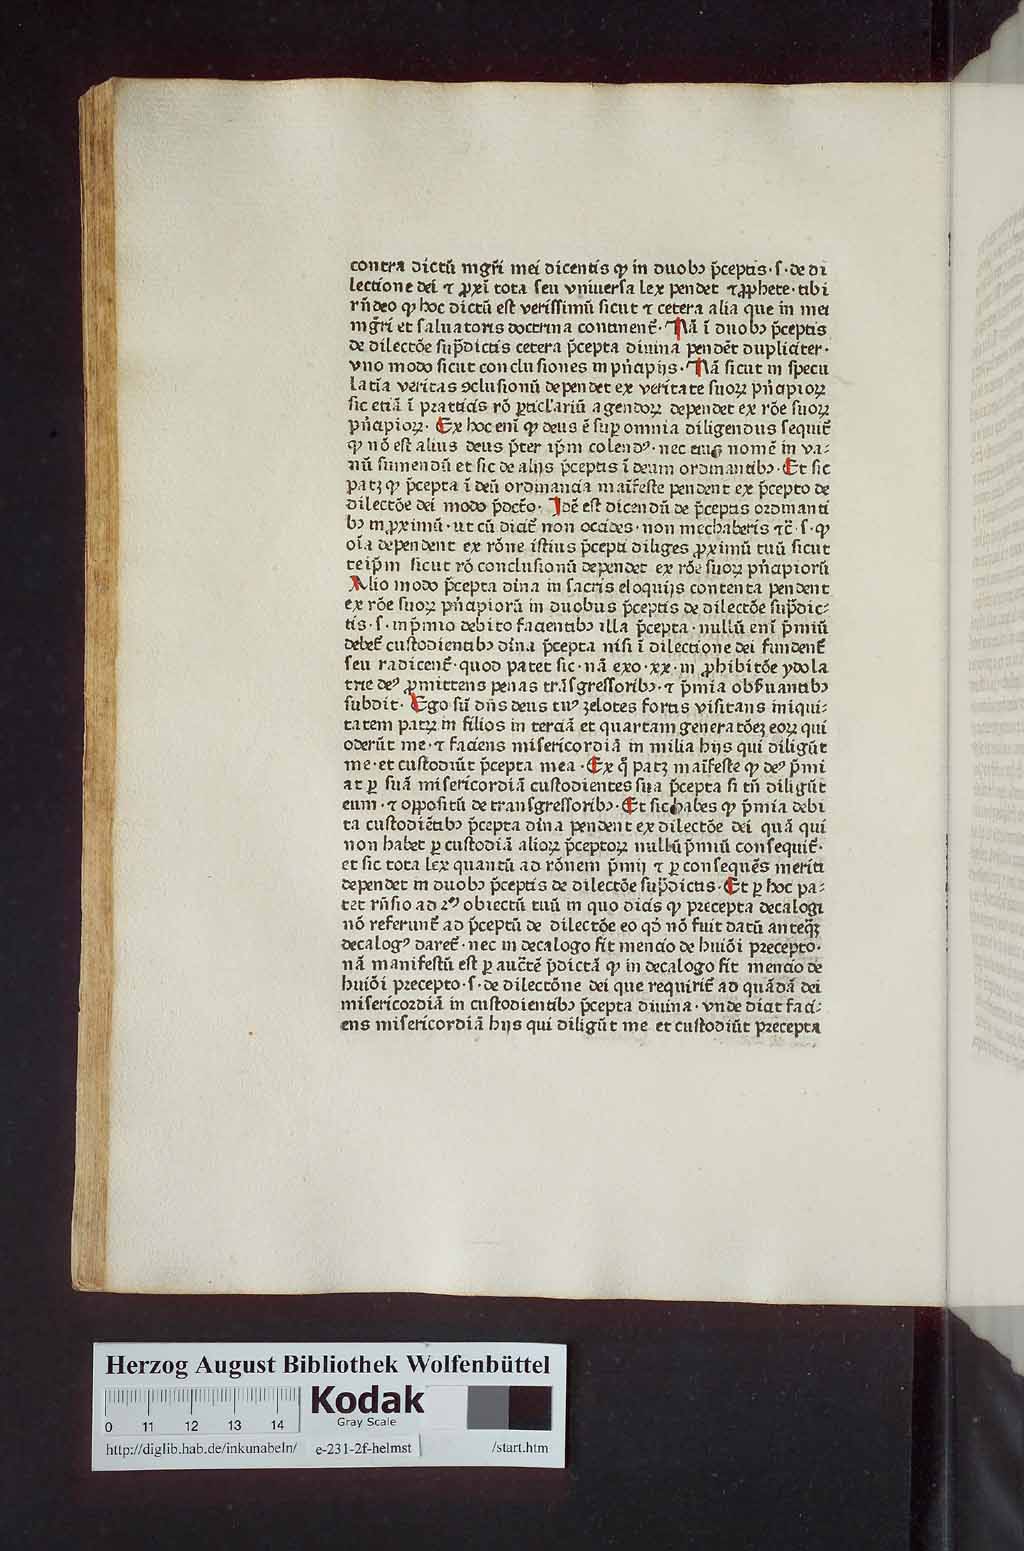 contra dictū mgr̄i mei dicentis ꝙ in duobꝫ p̄ceptis · s · de di
lectione dei ⁊ ꝓxi̅ tota seu vniuersa lex pendet ⁊ ꝓphete · tibi
rn̄deo ꝙ hoc dictū est verissimū sicut ⁊ cetera alia que in mei
mgr̄i et saluatoris doctrina continent᷑ · Nā ī duobꝫ p̄ceptis
de dilectōe sup̄dictis cetera p̄cepta diuina pendēt dupliciter ·
vno modo sicut conclusiones in pn̄cipijs · Nā sicut in specu
latīa veritas ɔclusionū dependet ex veritate suoꝝ pn̄cipioꝝ
sic etiā ī practicis rō ꝑticl'ariū agendoꝝ dependet ex rōe suoꝝ
pn̄cipioꝝ · Ex hoc enī ꝙ deus ē suꝑ omnia diligendus sequit᷑
ꝙ nō est alius deus p̄ter ip̄m colendꝰ · nec eius nomē in va⸗
nū sumendū et sic de alijs p̄ceptis ī deum ordinantibꝫ · Et sic
patꝫ ꝙ p̄cepta ī deū ordinancia maīfeste pendent ex p̄cepto de
dilectōe dei modo p̄dcō · Idē est dicendū de p̄ceptis ordinanti
bꝫ in ꝓximū · ut cū dicit᷑ non occides · non mechaberis ⁊c̄ · s · ꝙ
oīa dependent ex rōne istius p̄cepti diliges ꝓximū tuū sicut
teip̄m sicut rō conclusionū dependet ex rōe suoꝝ pn̄cipiorū
Alio modo p̄cepta diīna in sacris eloquijs contenta pendent
ex rōe suoꝝ pn̄cipiorū in duobus p̄ceptis de dilectōe sup̄dic⸗
tis · s · in p̄mio debito facientibꝫ illa p̄cepta · nullū enī p̄miū
debet᷑ custodientibꝫ diīna p̄cepta nisi ī dilectione dei fundent᷑
seu radicent᷑ · quod patet sic · nā exo · xx · in ꝓhibitōe ydola
trie deꝰ ꝓmittens penas trāsgressoribꝫ · ⁊ p̄mia obẜuantibꝫ
subdit · Ego sū dn̄s deus tuꝰ zelotes fortis visitans iniqui⸗
tatem patꝝ in filios in terciā et quartam generatōeꝫ eoꝝ qui
oderūt me · ⁊ faciens misericordiā in milia hijs qui diligūt
me · et custodiūt p̄cepta mea · Ex quo patꝫ maīfeste ꝙ deꝰ p̄mi
at ꝑ suā misericordiā custodientes sua p̄cepta si tn̄ diligūt
eum · ⁊ oppositū de transgressoribꝫ · Et sic habes ꝙ p̄mia debi
ta custodiētibꝫ p̄cepta diīna pendent ex dilectōe dei quā qui
non habet ꝑ custodiā alioꝝ p̄ceptoꝝ nullū p̄miū consequit᷑ ·
et sic tota lex quantū ad rōnem p̄mij ⁊ ꝑ consequēs meriti
dependet in duobꝫ p̄ceptis de dilectōe sup̄dictis · Et ꝑ hoc pa⸗
tet rn̄sio ad 2ᵐ obiectū tuū in quo dicis ꝙ precepta decalogi
nō referunt᷑ ad p̄ceptū de dilectōe eo qd̄ nō fuit datū anteqꝫ
decalogꝰ daret᷑ · nec in decalogo fit mencio de huiōi precepto ·
nā manifestū est ꝑ auctc̄em p̄dictā ꝙ in decalogo fit mencio de
huiōi precepto · s · de dilectōne dei que requirit᷑ ad quādā dei
misericordiā in custodientibꝫ p̄cepta diuina · vnde dicit faci⸗
ens misericordiā hijs qui diligūt me et custodiūt precepta
Herzog August Bibliothek Wolfenbüttel
0 11 12 13 14
Kodak
Gray Scale
http://diglib.hab.de/inkunabeln/ e-231-2f-helmst /start.htm